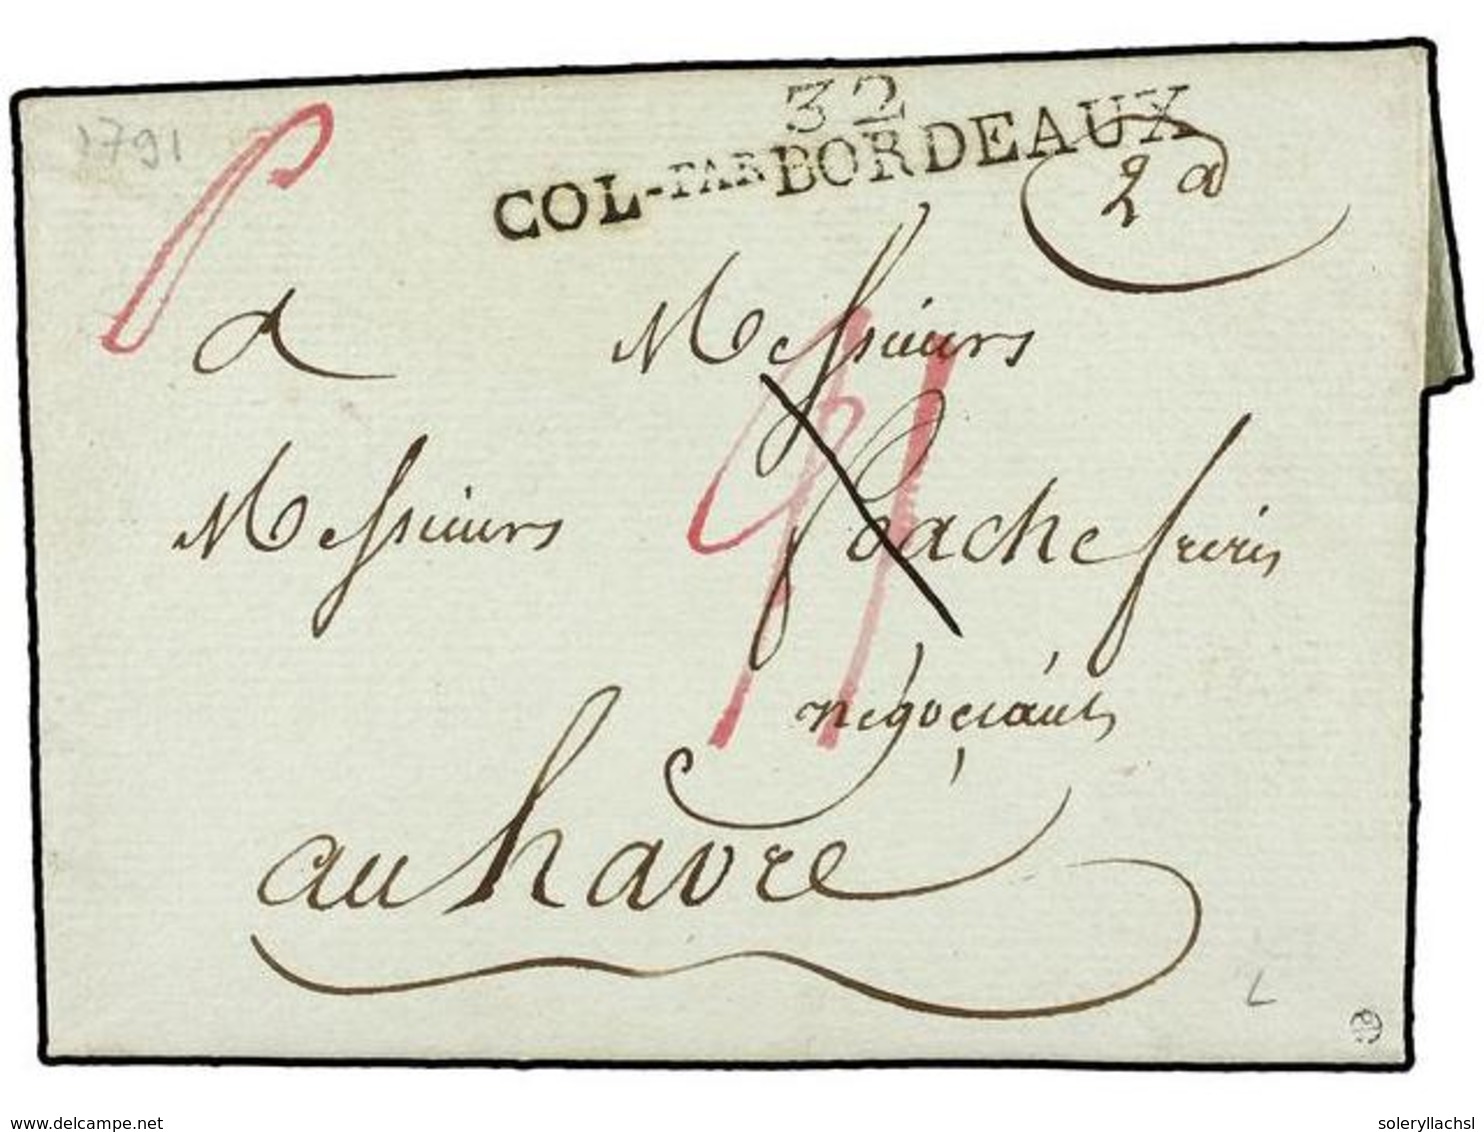 1791
32
COL-PAR BORDEAUX
2d
a Messieurs
Messieurs foache freres
negociants
au havre
L
www.delcampe.net
soleryllachsl